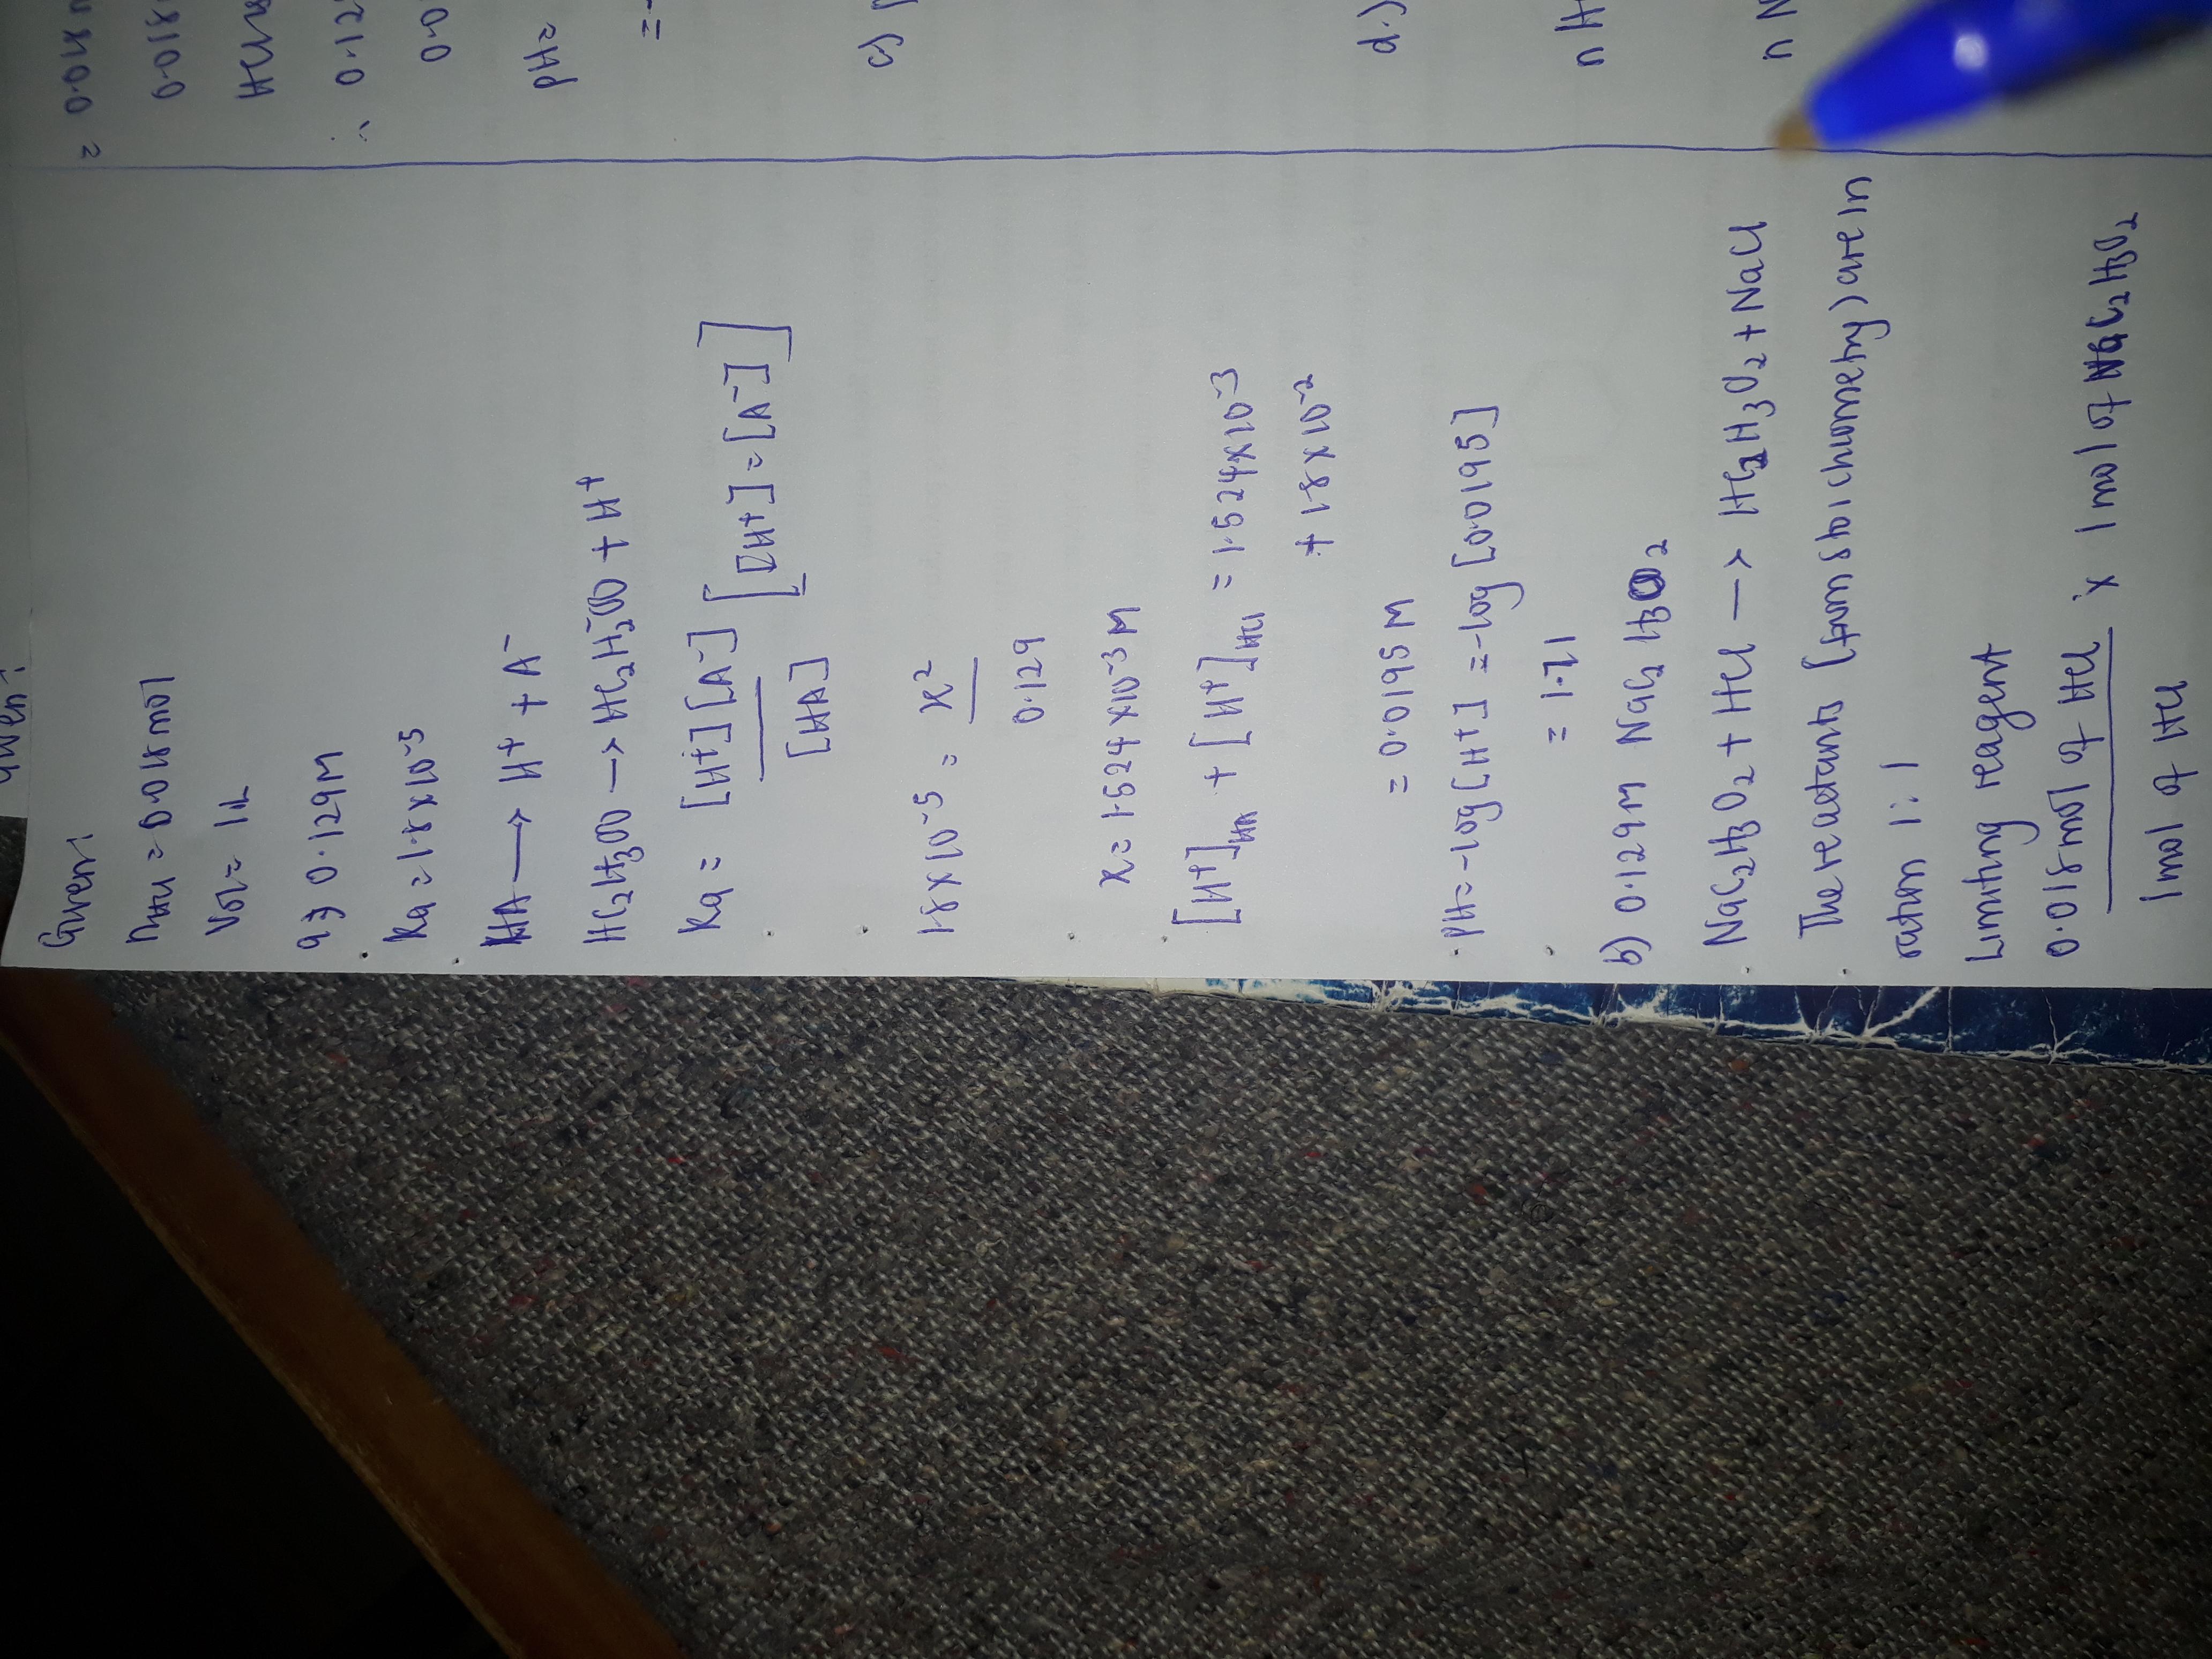 Given:
nHCl = 0.018mol
Vol = 1L
a) 0.129M
Ka = 1.8 x 10-5
HA → H+ + A-
HC2H3OO → HC2H2-OO + H+
Ka = [H+][A-] [[H+] = [A-]]
[HA]
1.8 x 10-5 = x2
0.129
x = 1.524 x10-3 M
[H+]HA + [H+]HCl = 1.524 x10-3
+ 1.8 x 10-2
= 0.0195 M
pH = -log[H+] = -log [0.0195]
= 1.71
b) 0.129M NaC2H3O2
NaC2H3O2 + HCl → HC2H3O2 + NaCl
The reactants (from stoichiometry) are in
ration 1:1
Limiting reagent
0.018mol of HCl x 1mol of NaC2H3O2
1mol of HCl
= 0.018
0.018
0.12
0.0
pH =
=
c)
d.)
n H
n N